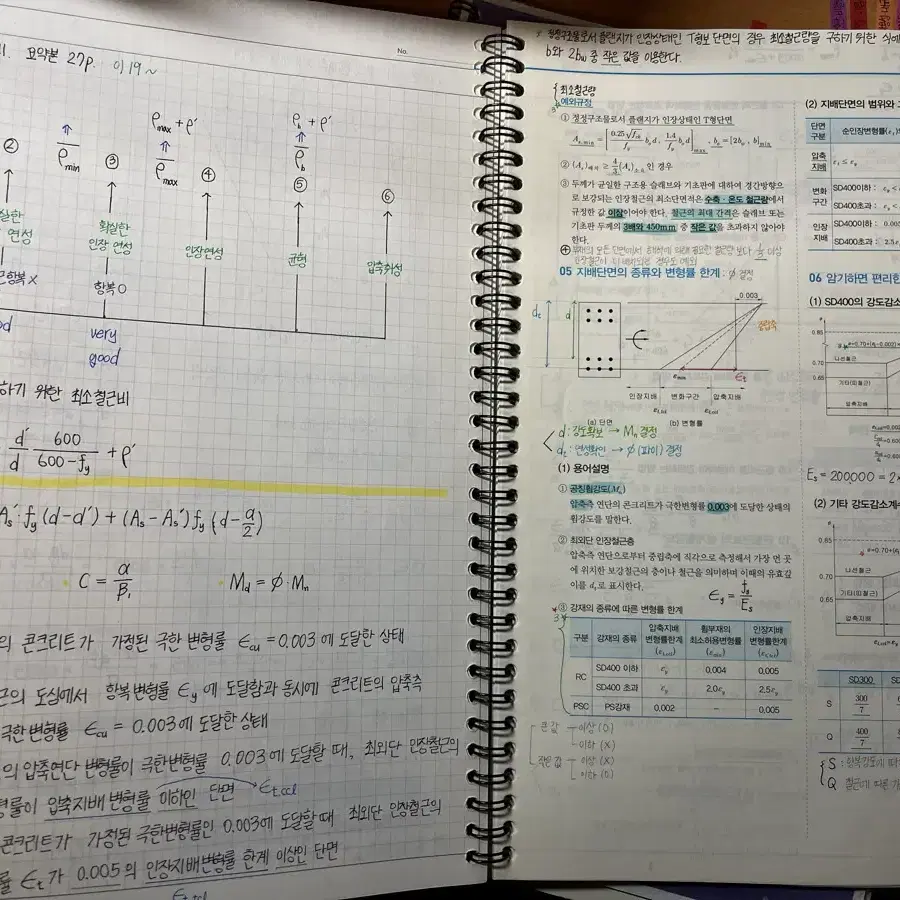 요약본 27p. 이19~
No.
ρmax + ρ'
ρb + ρ'
⇑
⇑
⇑
ρmin
ρmax
ρb
②
③
④
⑤
⑥
확실한
인장 연성
항복 O
연성
항복 X
인장연성
균형
압축취성
very
good
하기 위한 최소철근비
d'/d 600/(600-fy) + ρ'
As'·fy(d-d') + (As-As')fy(d-a/2)
C = a/β1
Md = ϕ·Mn
의 콘크리트가 가정된 극한 변형률 ϵcu = 0.003에 도달한 상태
근의 도심에서 항복변형률 ϵy에 도달함과 동시에 콘크리트의 압축측
극한변형률 ϵcu = 0.003에 도달한 상태
의 압축연단 변형률이 극한변형률 0.003에 도달할 때, 최외단 인장철근의
형률이 압축지배 변형률 이하인 단면 ϵt,ccl
콘크리트가 가정된 극한변형률인 0.003에 도달할 때 최외단 인장철근의
률 ϵt가 0.005의 인장지배변형률 한계 이상인 단면
정정구조물로서 플랜지가 인장상태인 T형보 단면의 경우 최소철근량을 구하기 위한 식에
b와 2bw 중 작은 값을 이용한다.
최소철근량
예외규정
① 정정구조물로서 플랜지가 인장상태인 T형단면
As,min = [0.25√fck/fy bo d, 1.4/fy bo d]max, bo = [2bw, b]min
② (As)해석 ≥ 4/3 (As)소요 인 경우
③ 두께가 균일한 구조용 슬래브와 기초판에 대하여 경간방향으
로 보강되는 인장철근의 최소단면적은 수축·온도 철근량에서
규정한 값 이상이어야 한다. 철근의 최대 간격은 슬래브 또는
기초판 두께의 3배와 450mm 중 작은 값을 초과하지 않아야
한다.
05 지배단면의 종류와 변형률 한계 : ϕ 결정
0.003
dt
d
중립축
ϵ
εmin
ϵt
인장지배
변화구간
압축지배
εt,tcl
εt,ccl
(a) 단면
(b) 변형률
d : 강도확보 → Mn 결정
dt : 연성확인 → ϕ (파이) 결정
(1) 용어설명
① 공칭휨강도(Mn)
압축측 연단의 콘크리트가 극한변형률 0.003에 도달한 상태의
휨강도를 말한다.
② 최외단 인장철근층
압축측 연단으로부터 중립축에 직각으로 측정해서 가장 먼 곳
에 위치한 보강철근의 층이나 철근을 의미하며 이때의 유효깊
이를 dt로 표시한다.
ϵy = fy/Es
③ 강재의 종류에 따른 변형률 한계
구분 강재의 종류 압축지배 변형률한계 (εt,ccl) 휨부재의 최소허용변형률 (εmin) 인장지배 변형률한계 (εt,tcl)
RC SD400 이하 εy 0.004 0.005
SD400 초과 εy 2.0εy 2.5εy
PSC PS강재 0.002 – 0.005
큰 값 이상 (O)
이하 (X)
작은 값 이상 (X)
이하 (O)
(2) 지배단면의 범위와
단면 구분 순인장변형률(εt)
압축 지배 εt ≤ εy
변화 구간 SD400이하 : εy <
SD400초과 : εy <
인장 지배 SD400이하 : 0.005
SD400초과 : 2.5ε
06 암기하면 편리한
(1) SD400의 강도감소
0.85
0.70
0.65
나선철근
기타(띠철근)
압축지배
Es = 200,000 = 2×
(2) 기타 강도감소계수
0.85
0.70
0.65
나선철근
기타(띠철근)
압축지배
SD300
S 300/7
Q 400/7
S : 항복강도에 따
Q 철근에 따른